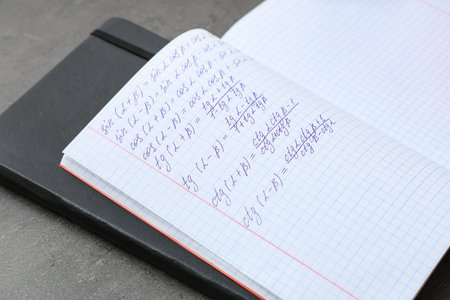 sin (α + β) = sin α cos β + cos α
sin (α - β) = sin α cos β - cos α
cos (α + β) = cos α cos β - sin
cos (α - β) = cos α cos β + sin α
tg (α + β) = (tg α + tg β) / (1 - tg α tg β)
tg (α - β) = (tg α - tg β) / (1 + tg α tg β)
ctg (α + β) = (ctg α ctg β - 1) /
ctg (α - β) = (ctg α ctg β + 1) / (ctg β - ctg α)